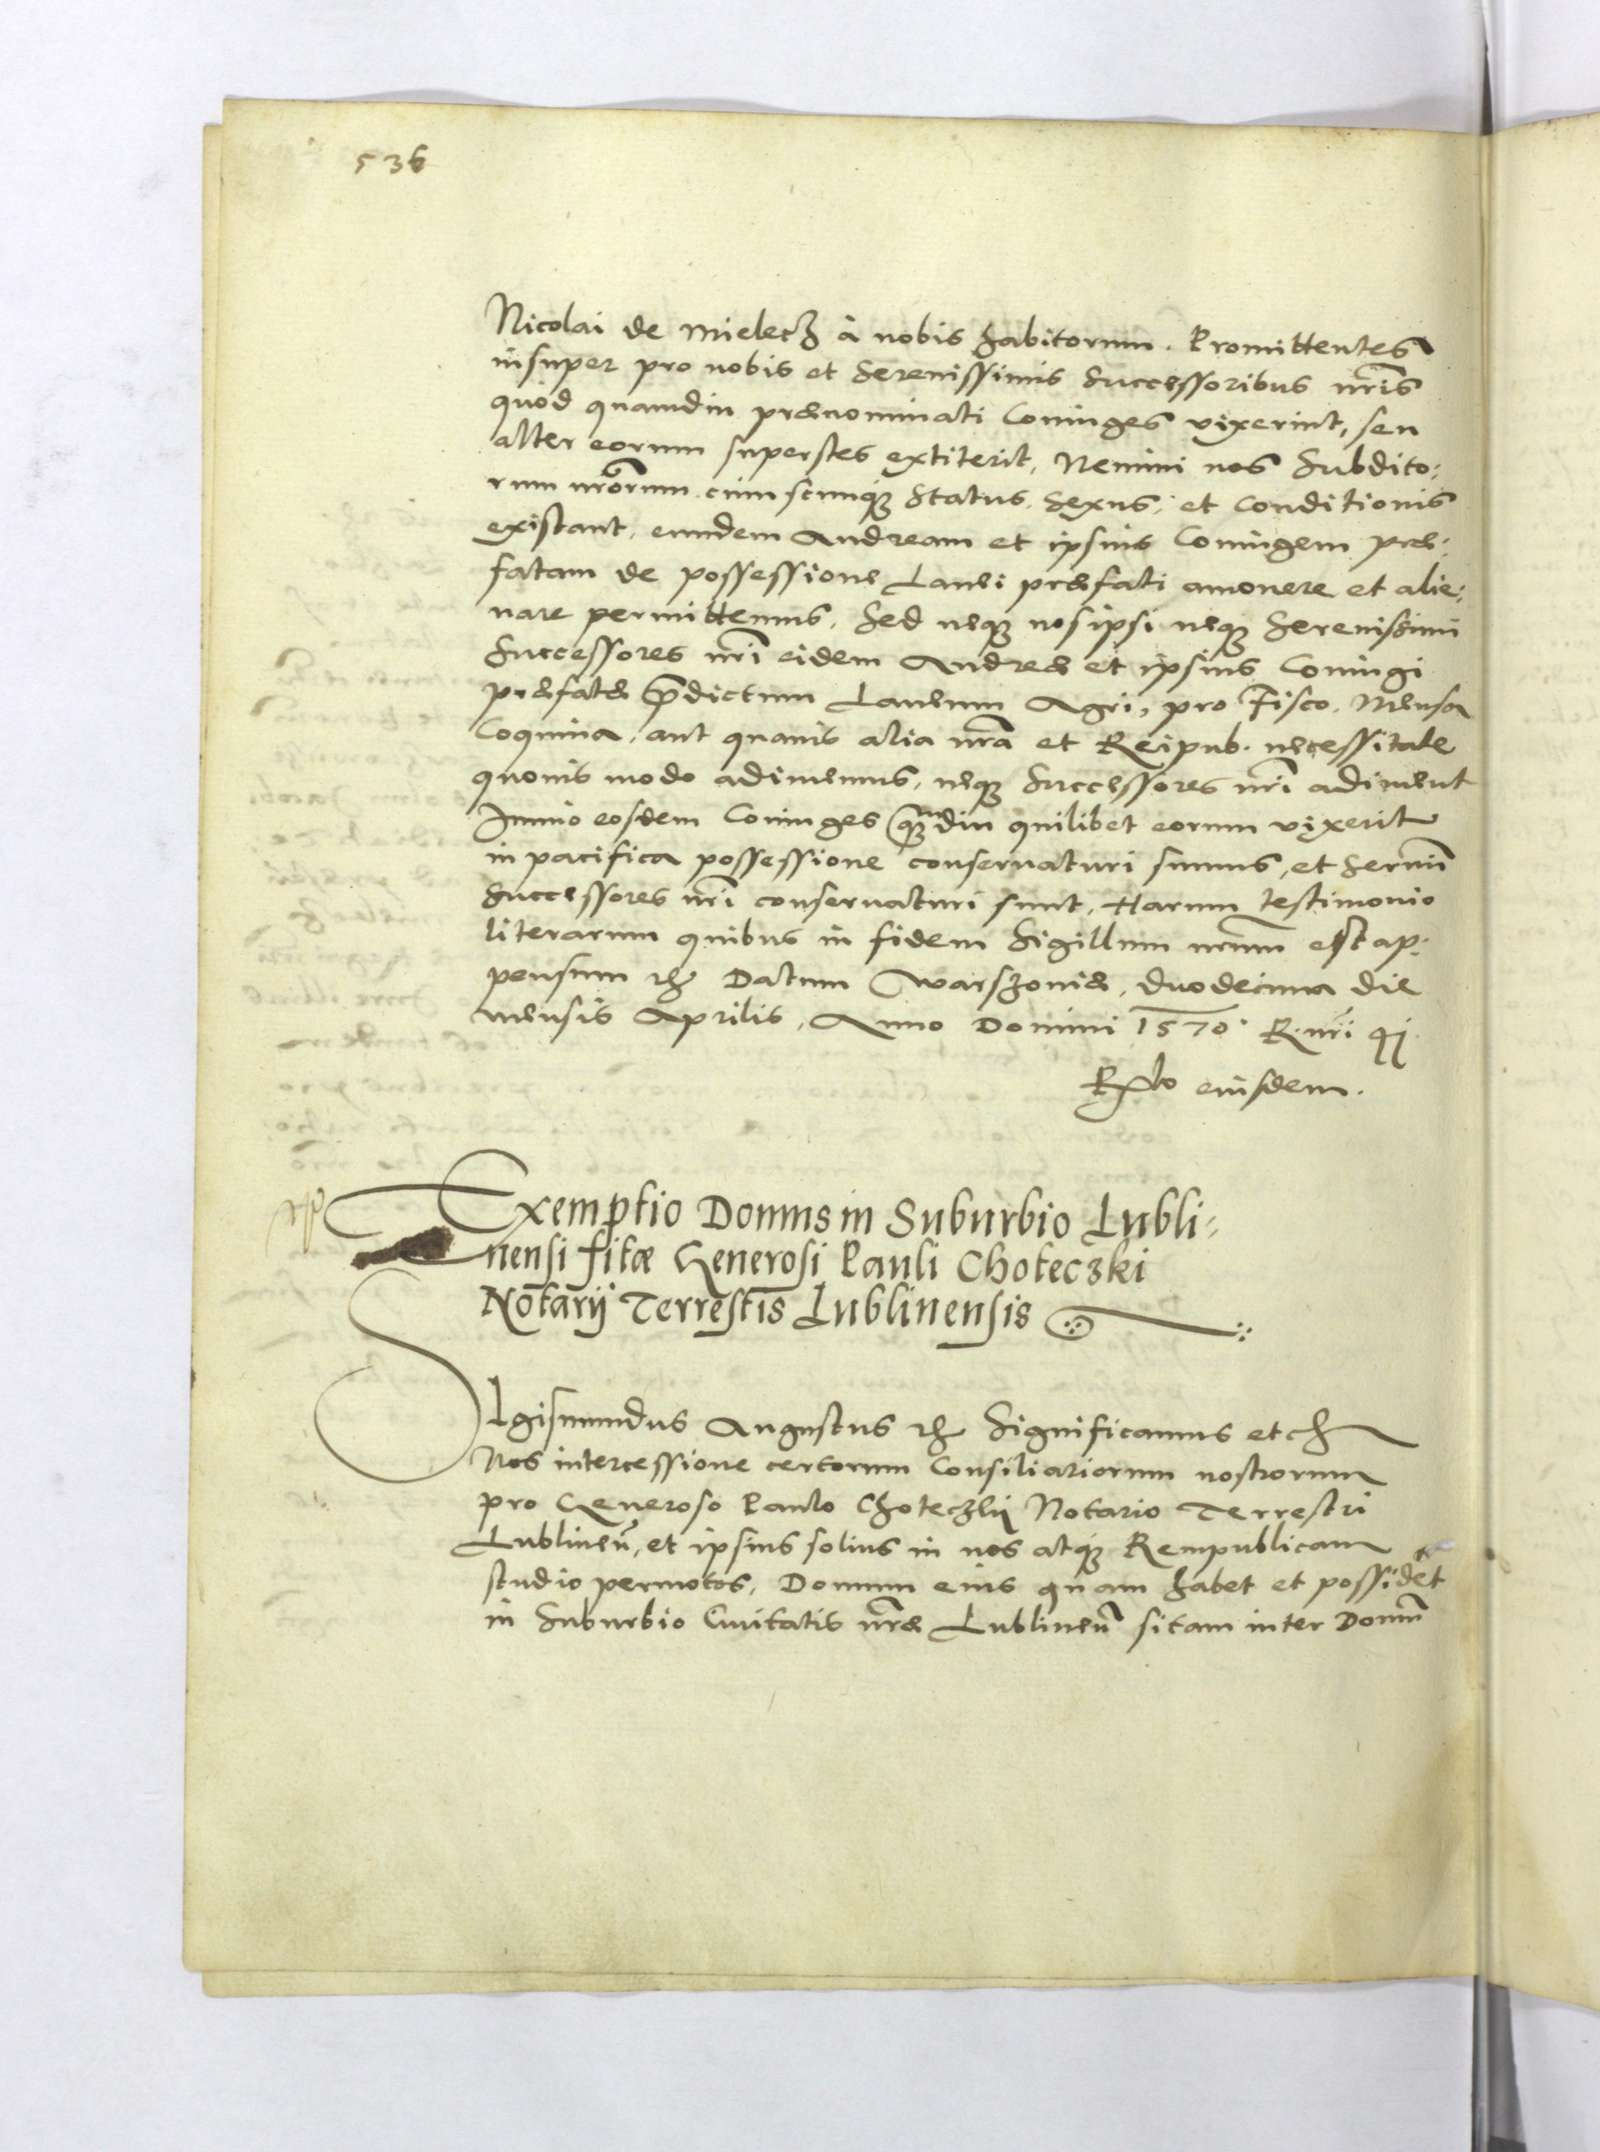 536
Nicolai de Mielecz à nobis habitorum. Promittentes
insuper pro nobis et Serenissimis Successoribus nr̃is
quòd quamdiu prænominati Coniuges vixerint, seu
alter eorum superstes extiterit, Nemini nos Subdito:
rum nrõrum cuiuscunq; Status, Sexus, et Conditionis
existant, eundem Andream et ipsius Coniugem præ:
fatam de possessione Lanei præfati amovere et alie:
nare permittemus. Sed neq; nos ipsi neq; Serenissimi
Successores nr̃i eidem Andreæ et ipsius Coniugi
præfatæ p̃dictum Laneum Agri, pro Fisco, Mensa
Coquina, aut quavis alia nr̃a et Reipub. necessitate
quovis modo adimemus, neq; Successores nr̃i adiment
Immo eosdem Coniuges quamdiu quilibet eorum vixerit
in pacifica possessione conservaturi sumus, et Sermi
Successores nr̃i conservaturi sunt, Harum testimonio
literarum quibus in fidem Sigillum nr̃um est ap:
pensum etc Datum Warszoviæ, duodecima die
mensis Aprilis, Anno Domini 1570 R. nr̃i 41.
Rlo eiusdem.
Exemptio Domus in Suburbio Lubli:
nensi sitæ Generosi Pauli Choteczki
Notarij Terrestris Lublinensis
SIgismundus Augustus etc Significamus etc
Nos intercessione certorum Consiliariorum nostrorum
pro Generoso Paulo Choteczki Notario Terrestri
Lublineñ, et ipsius solius in nos atq; Rempublicam
studio permotos, Domum eius quam habet et possidet
in Suburbio Civitatis nr̃æ Lublineñ sitam inter Domũ